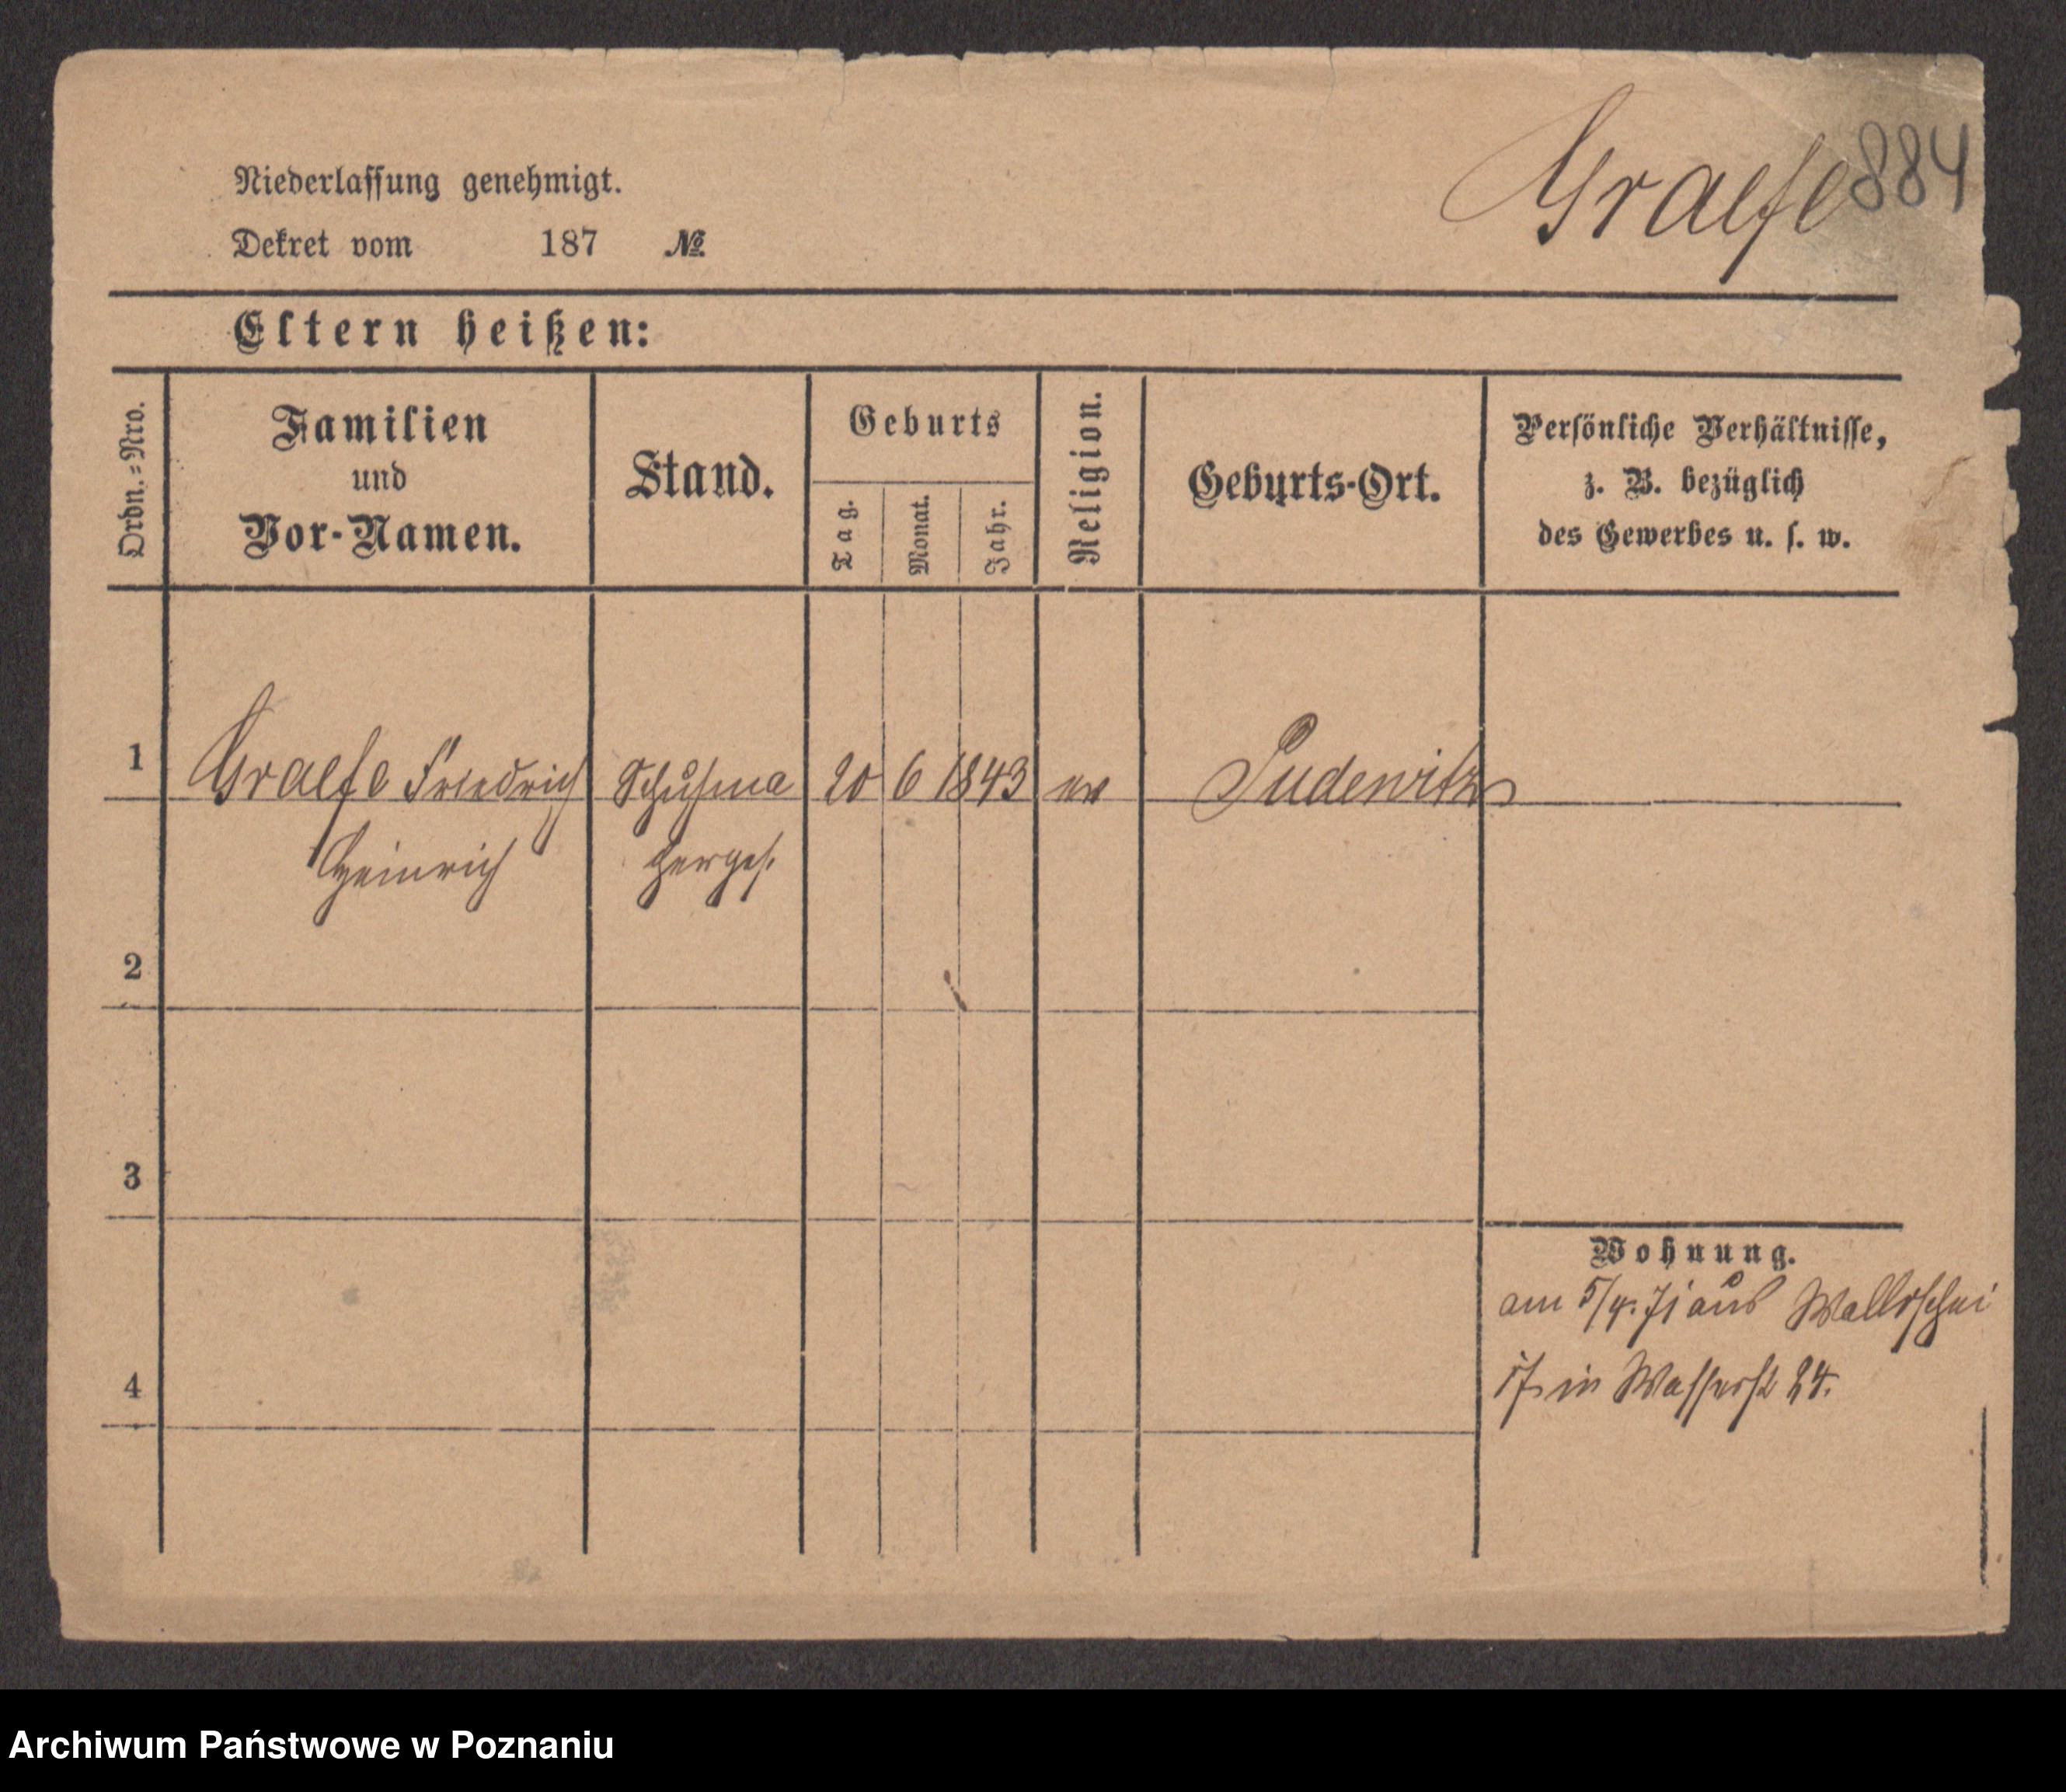 Graefe 884
Niederlassung genehmigt.
Dekret vom 187 №
Eltern heißen:
Ordn.=Nro.
Familien
und
Vor-Namen.
Stand.
Geburts
Tag.
Monat.
Jahr.
Religion.
Geburts-Ort.
Persönliche Verhältnisse,
z. B. bezüglich
des Gewerbes u. s. w.
1 Graefe Friedrich Schuhma 20 6 1843 ev Pudewitz
Heinrich cherges.
2
3
Wohnung.
am 5/4. 71 aus Wallischei
in Wasserst 24.
4
Archiwum Państwowe w Poznaniu